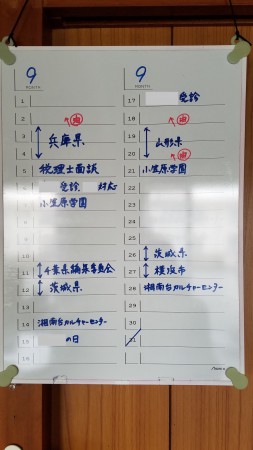 9
MONTH
1
2
3
兵庫県
4
5 税理士面談
6 受診 対応
7 小笠原学園
8
9
10
11 千葉県編集委員会
12 茨城県
13
14 湘南台カルチャーセンター
15 の日
16
9
MONTH
17 受診
18
19 山形県
20
21 小笠原学園
22
23
24
25
26 茨城県
27 横浜市
28 湘南台カルチャーセンター
29
30
31